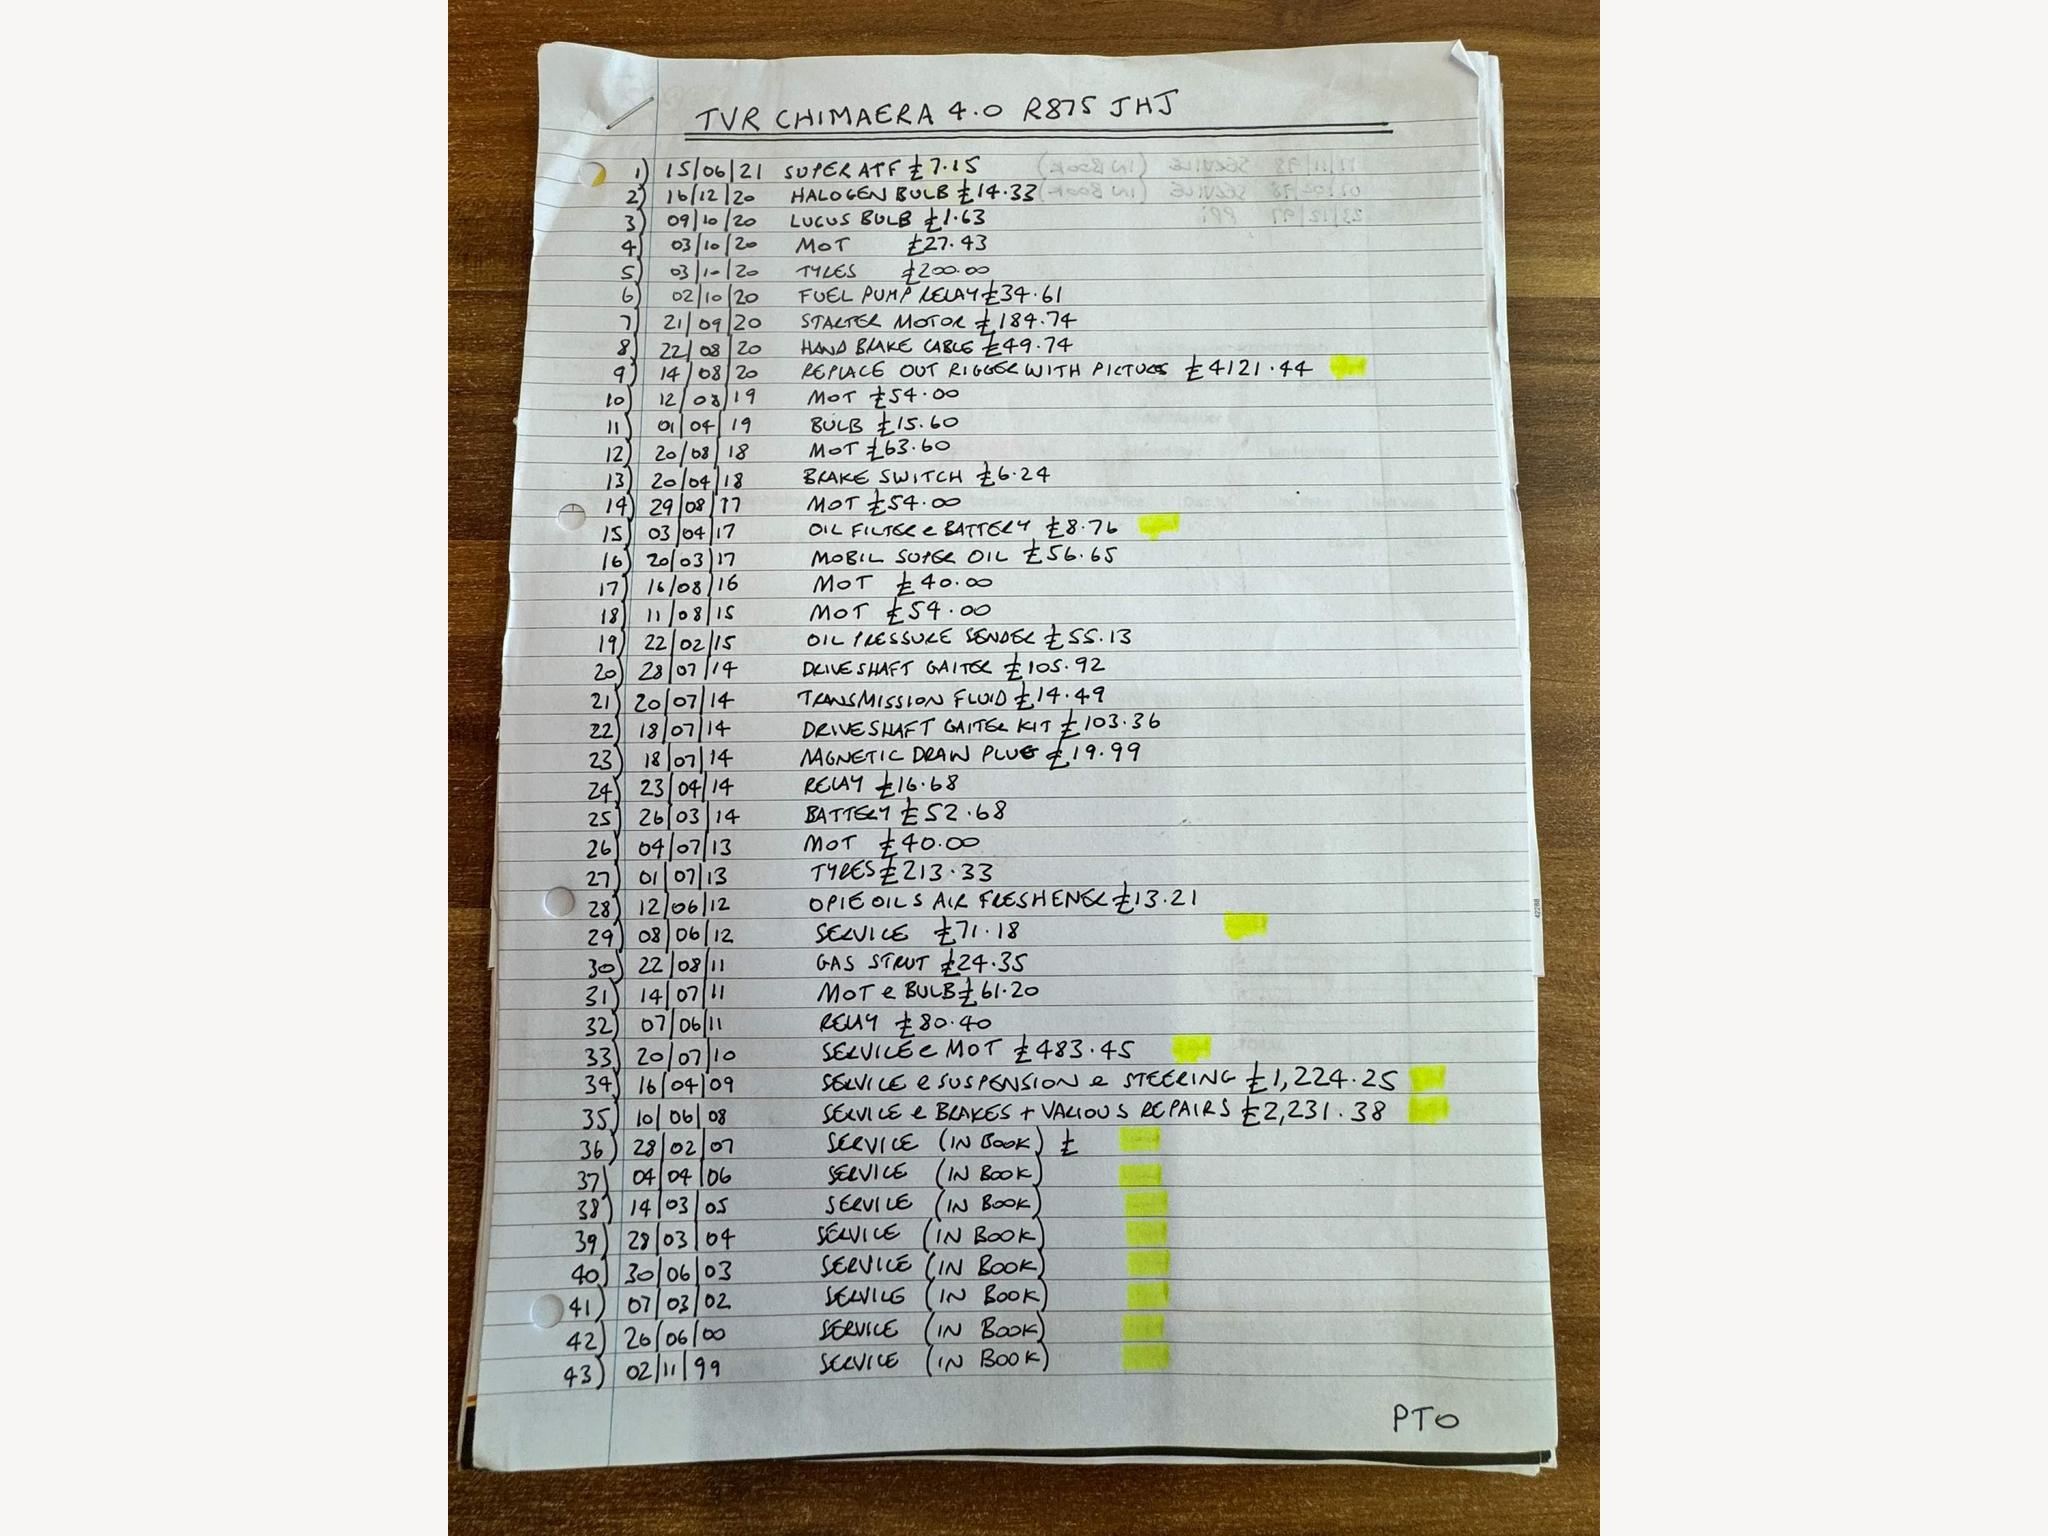 TVR CHIMAERA 4.0 R875 JHJ
1) 15/06/21 SUPER ATF £7.15
2) 16/12/20 HALOGEN BULB £14.33
3) 09/10/20 LUCUS BULB £1.63
4) 03/10/20 MOT £27.43
5) 03/10/20 TYRES £200.00
6) 02/10/20 FUEL PUMP RELAY £34.61
7) 21/09/20 STARTER MOTOR £184.74
8) 22/08/20 HAND BRAKE CABLE £49.74
9) 14/08/20 REPLACE OUT RIGGER WITH PICTURES £4121.44
10) 12/08/19 MOT £54.00
11) 01/04/19 BULB £15.60
12) 20/08/18 MOT £63.60
13) 20/04/18 BRAKE SWITCH £6.24
14) 29/08/17 MOT £54.00
15) 03/04/17 OIL FILTER & BATTERY £8.76
16) 20/03/17 MOBIL SUPER OIL £56.65
17) 16/08/16 MOT £40.00
18) 11/08/15 MOT £54.00
19) 22/02/15 OIL PRESSURE SENDER £55.13
20) 28/07/14 DRIVESHAFT GAITER £105.92
21) 20/07/14 TRANSMISSION FLUID £14.49
22) 18/07/14 DRIVESHAFT GAITER KIT £103.36
23) 18/07/14 MAGNETIC DRAIN PLUG £19.99
24) 23/04/14 RELAY £16.68
25) 26/03/14 BATTERY £52.68
26) 04/07/13 MOT £40.00
27) 01/07/13 TYRES £213.33
28) 12/06/12 OPIE OILS AIR FRESHENER £13.21
29) 08/06/12 SERVICE £71.18
30) 22/08/11 GAS STRUT £24.35
31) 14/07/11 MOT & BULB £61.20
32) 07/06/11 RELAY £80.40
33) 20/07/10 SERVICE & MOT £483.45
34) 16/04/09 SERVICE & SUSPENSION & STEERING £1,224.25
35) 10/06/08 SERVICE & BRAKES + VARIOUS REPAIRS £2,231.38
36) 28/02/07 SERVICE (IN BOOK) £
37) 04/04/06 SERVICE (IN BOOK)
38) 14/03/05 SERVICE (IN BOOK)
39) 28/03/04 SERVICE (IN BOOK)
40) 30/06/03 SERVICE (IN BOOK)
41) 07/03/02 SERVICE (IN BOOK)
42) 26/06/00 SERVICE (IN BOOK)
43) 02/11/99 SERVICE (IN BOOK)
PTO